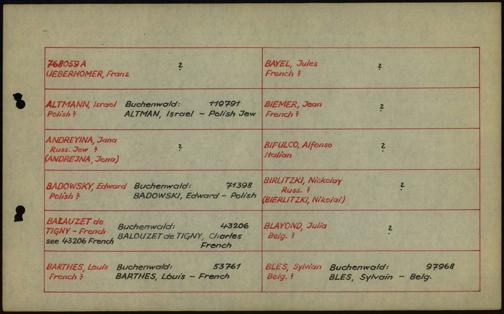 768059A
UEBERHOMER, Franz
?
ALTMANN, Israel
Polish ?
Buchenwald: 119791
ALTMAN, Israel - Polish Jew
ANDREYINA, Jana
Russ. Jew ?
(ANDREJNA, Jena)
?
BADOWSKY, Edward
Polish ?
Buchenwald: 71398
BADOWSKI, Edward - Polish
BALAUZET de
TIGNY - French
see 43206 French
Buchenwald: 43206
BALOUZET de TIGNY, Charles
French
BARTHES, Louis
French ?
Buchenwald: 53761
BARTHES, Louis - French
BAYEL, Jules
French ?
?
BIEMER, Jean
French ?
?
BIFULCO, Alfonso
Italian
?
BIRLITZKI, Nickolay
Russ. ?
(BIERLITZKI, Nikolai)
?
BLAYOND, Julia
Belg. ?
?
BLES, Sylvian
Belg. ?
Buchenwald: 97968
BLES, Sylvain - Belg.